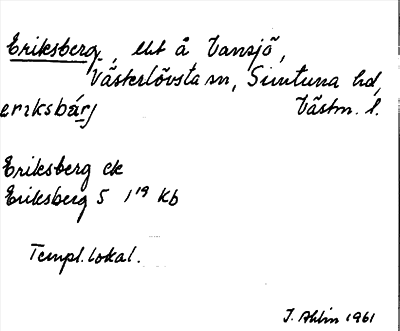 Eriksberg, lht å Vansjö,
Västerlövsta sn, Simtuna hd,
eriksbárj Västm. l.
Eriksberg ek
Eriksberg 5 1¹⁹ Kb
Templ. lokal.
J. Ahlin 1961